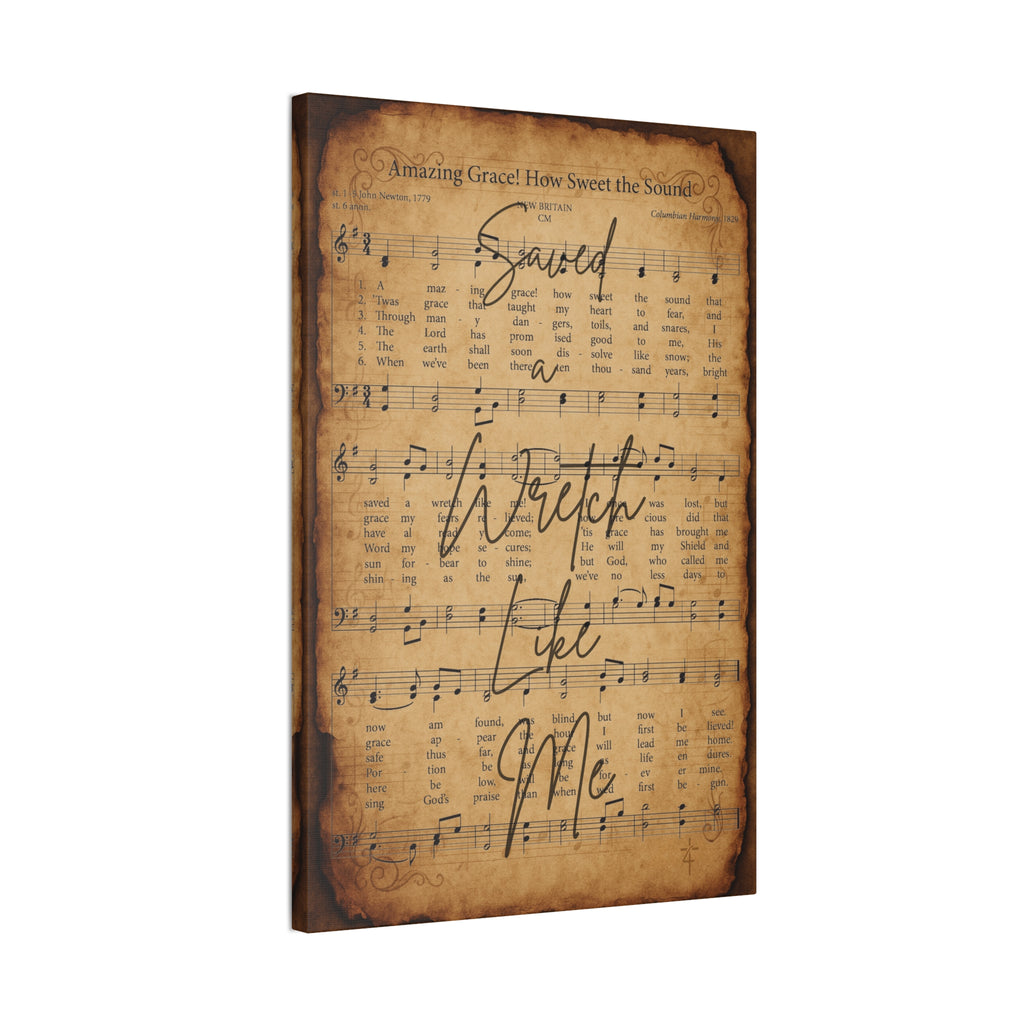 Amazing Grace! How Sweet the Sound
st. 1 John Newton, 1779
st. 6 anon.
NEW BRITAIN
CM
Columbian Harmony, 1829
Saved
1. A maz - ing grace! how sweet the sound that
2. 'Twas grace that taught my heart to fear, and
3. Through man - y dan - gers, toils, and snares, I
4. The Lord has prom ised good to me, His
5. The earth shall soon dis - solve like snow; the
6. When we've been there ten thou - sand years, bright
a
saved a wretch like me! I was lost, but
grace my fears re - lieved; how cious did that
have al read y come; 'tis grace has brought me
Word my hope se - cures; He will my Shield and
sun for - bear to shine; but God, who called me
shin - ing as the sun, we've no less days to
Wretch
Like
now am found, was blind, but now I see.
grace ap - pear the hour I first be lieved!
safe thus far, and grace will lead me home.
Por - tion be as long as life en dures.
here be low, will be for - ev er mine.
sing God's praise than when we'd first be - gun.
Me